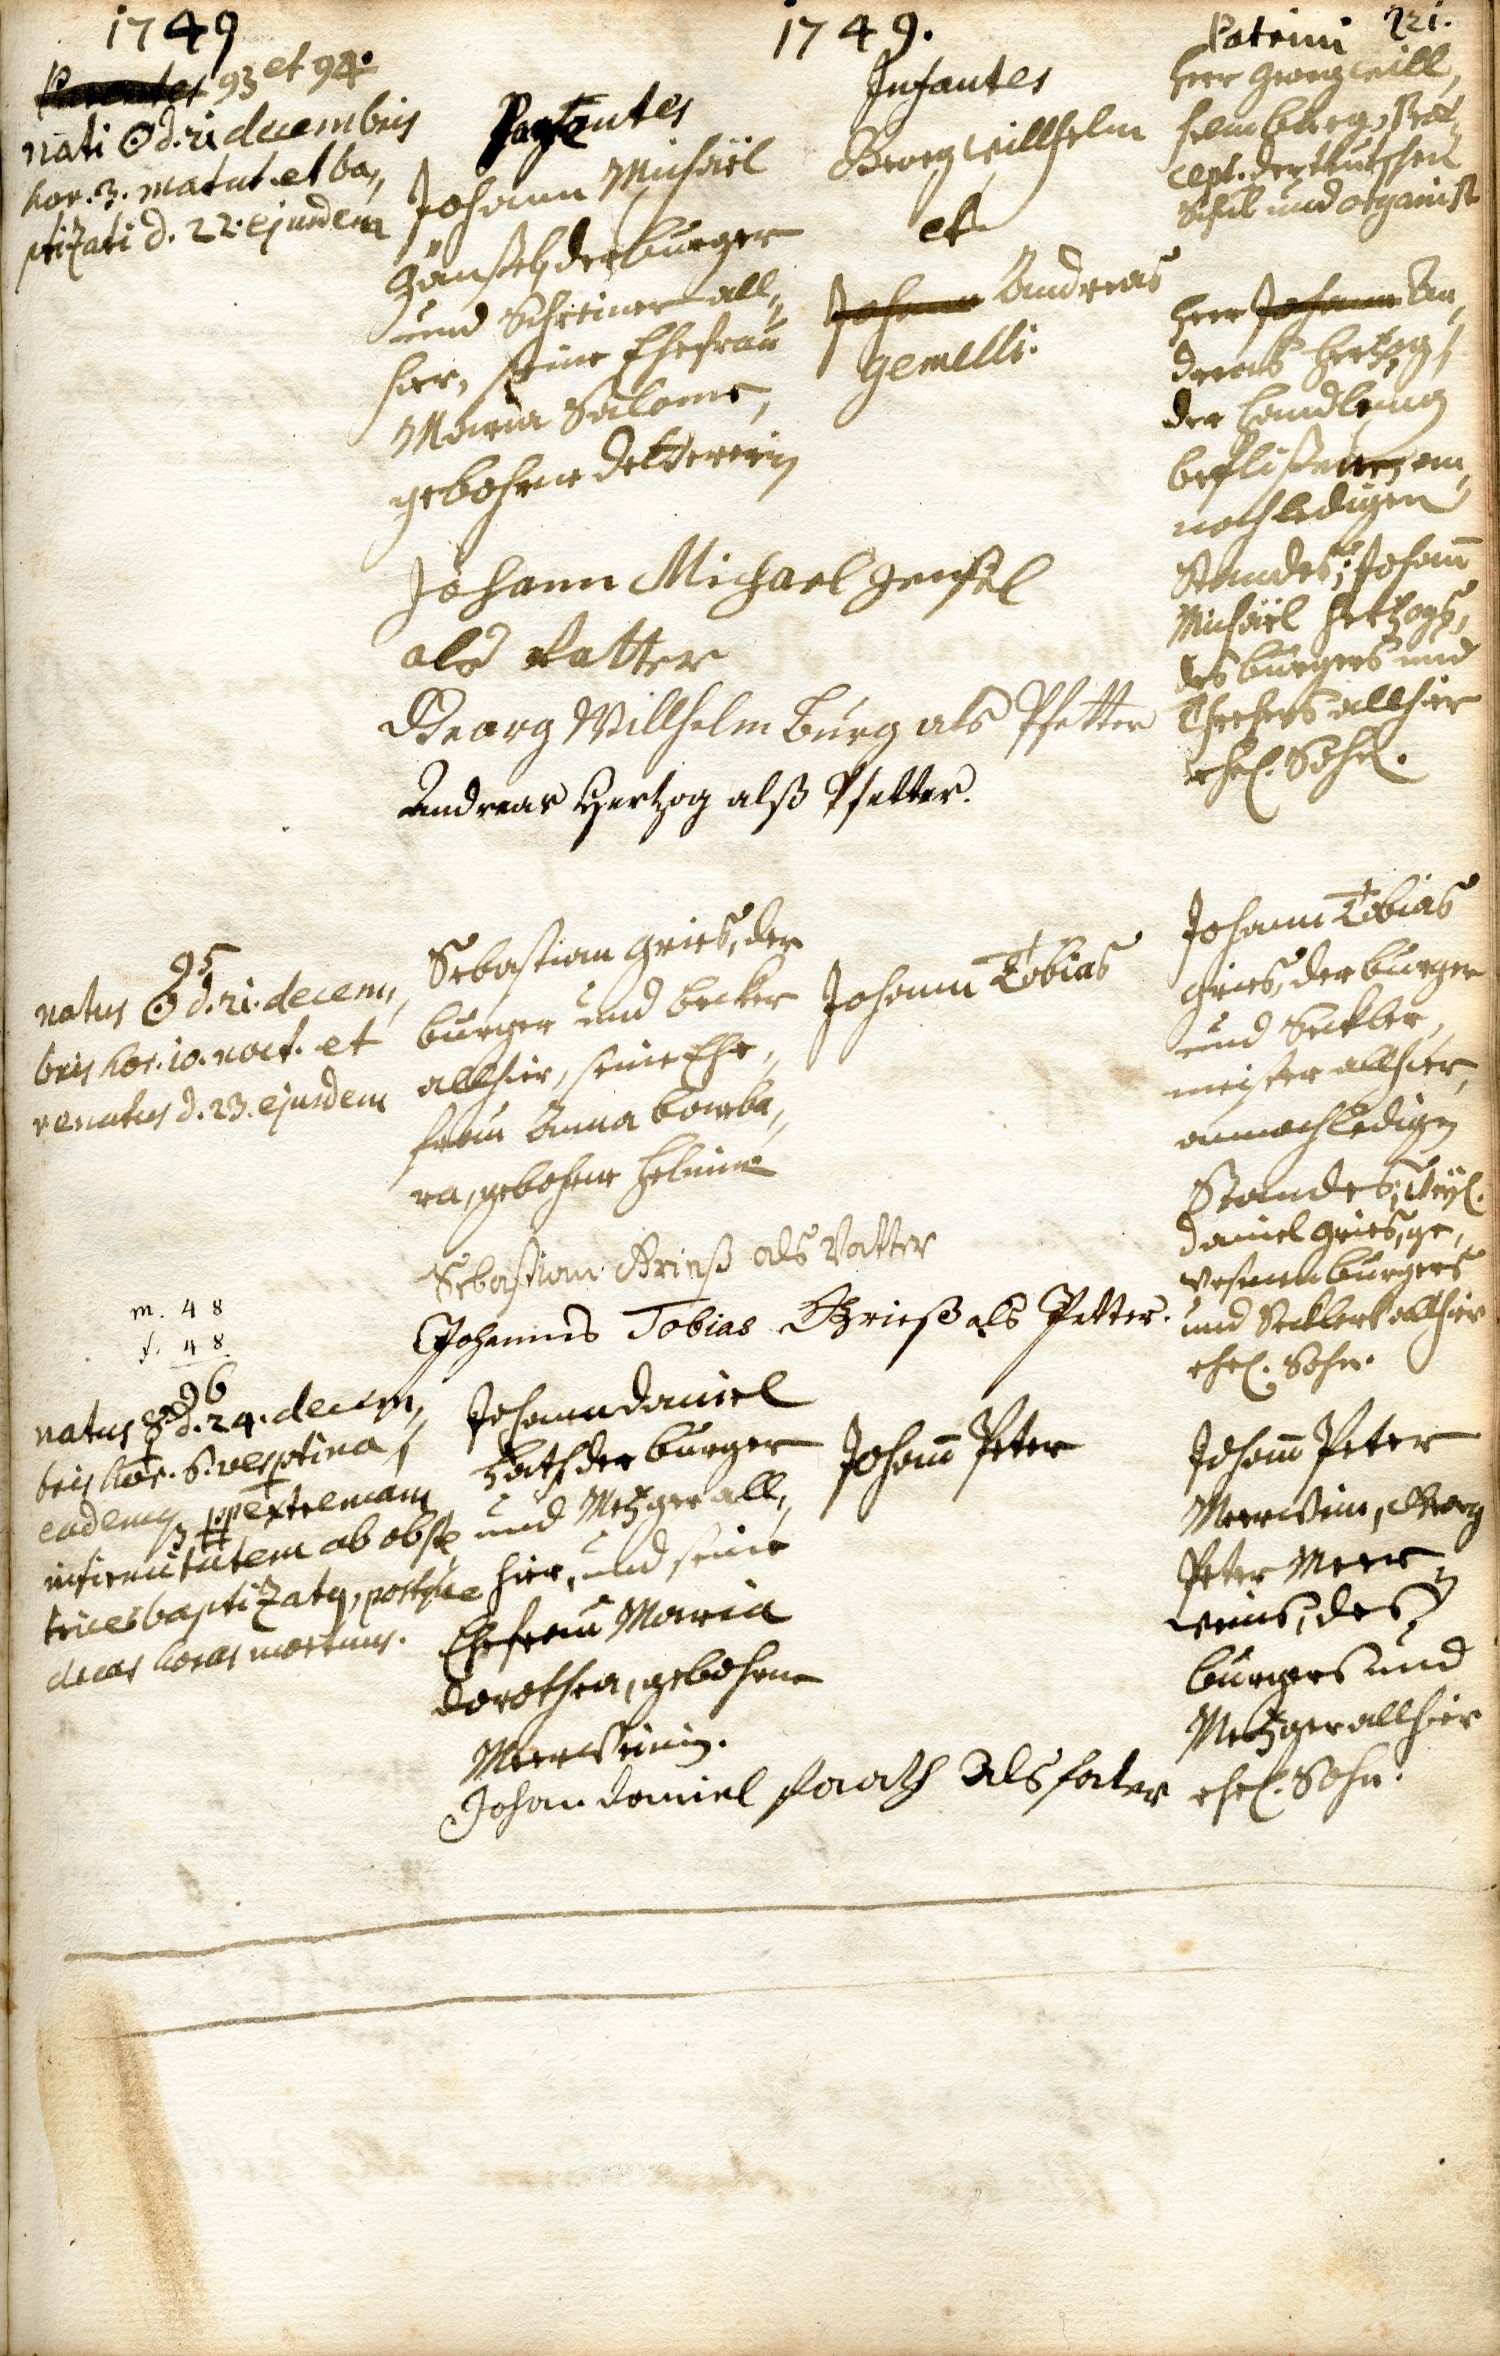 1749
1749.
221.
Parentes
Infantes
Patrini
93 et 94.
nati ☉ d. 21 decembris
hor. 3. matut. et ba„
ptizati d. 22. ejusdem
Johann Michäel
Gänßel, der burger
und Schreiner all„
hier, seine Ehefrau
Maria Salome,
gebohrne
Georg Willhelm
et
Andreas
gemelli.
Herr Georg Will„
helm Burg, Præ„
cept. der teutschen
Schul und organist
Herr Johann An„
dreas Hertzog,
der Handlung
beflißener, an„
noch ledigen
Standes, Johann
Michäel Hertzogs,
des burgers und
allhier
ehel. Sohn.
Johann Michael Gensel
als Vatter
Georg Willhelm Burg als Pfetter
Andreas Hertzog alß Pfetter.
95
natus ☉ d. 21. decem„
bris hor. 10. noct. et
renatus d. 23. ejusdem
Sebastian Gries, der
burger und becker
allhier, seine Ehe„
frau Anna Barba„
ra, gebohrne
Johann Tobias
Johann Tobias
Gries, der burger
und Seckler„
meister allhier,
annoch ledigen
Standes, Weyl.
Daniel Gries, ge„
wesenen burgers
und Secklers allhier
ehel. Sohn.
Sebastian Grieß als Vatter
Johannes Tobias Grieß als Petter.
m. 48
f. 48
96
natus ☿ d. 24. decem„
bris hor. 6. vespertina,
eademq; pp extremam
infirmitatem ab obste„
trice baptizatq, post
horas mortuus.
Johann Daniel
der burger
und Metzger all„
hier, und seine
Ehefrau Maria
Dorothea, gebohrne
Meerweinin.
Johann Peter
Johann Peter
Meerwein, Georg
Peter Meer„
weins, des
burgers und
Metzger allhier
ehel. Sohn.
Johan Daniel als fater